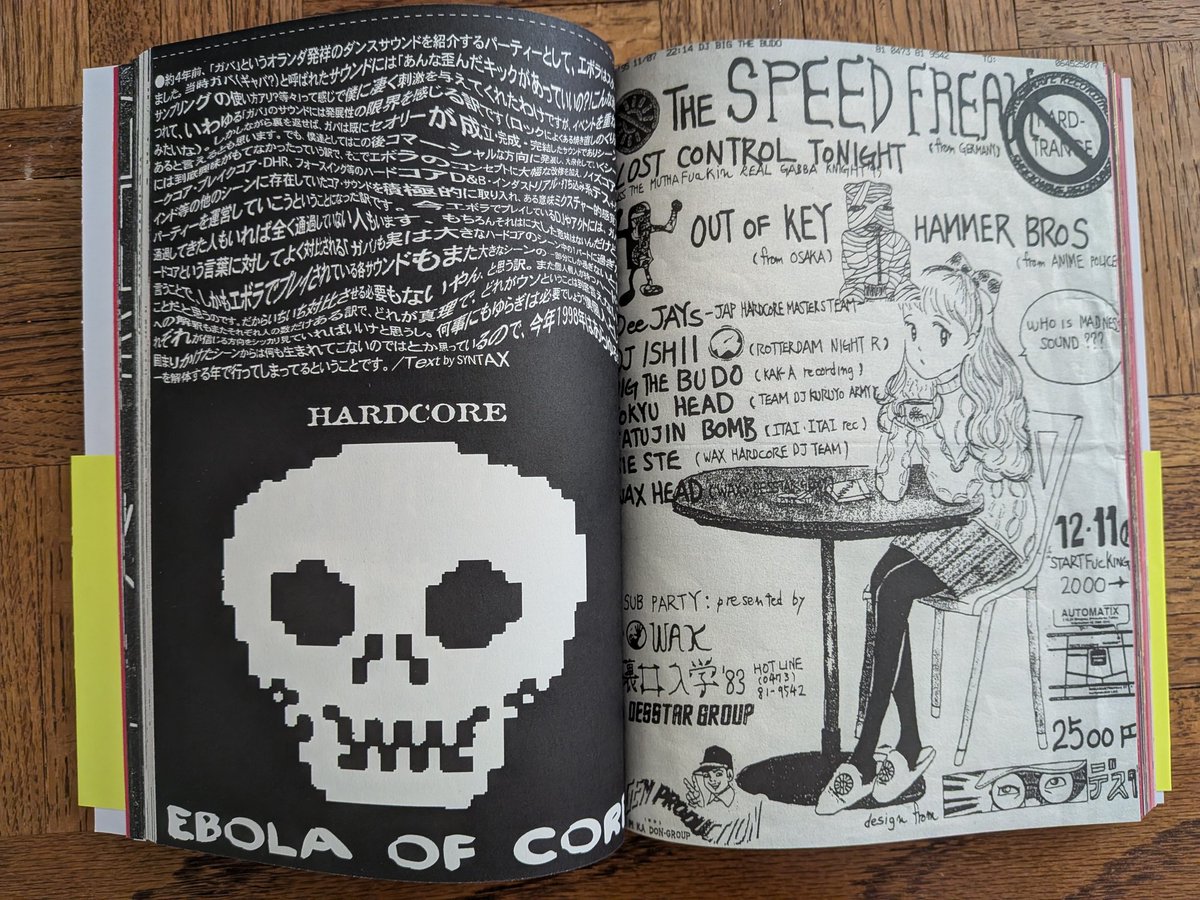 ●約4年前、「ガバ」というオランダ発祥のダンスサウンドを紹介するパーティーとして、エボラは
ました。当時ガバ(ギャバ?)と呼ばれたサウンドには「あんな歪んだキックがあっていいの?にこんな
サンプリングの使い方アリ?等々」って感じで僕に凄く刺激を与えてくれたわけですが、イベントを重
つれて、いわゆる「ガバ」のサウンドには発展性の限界を感じる訳です
みたいな)。しかしながら裏を返せば、ガバは既にセオリーが成立・完成・完結したサウンドであり
あると言えるとも思います。でも、僕達としてはこの後コマーシャルな方向に発展し
には到底興味がもてなかったっていう訳で、そこでエボラのコンセプトに大幅な改修を加え、ノイズコア
ークコア・ブレイクコア・DHR、フォースイング等のハードコアD&B・インダストリアル・打ち込み系
インド等の他のシーンに存在していたコア・サウンドを積極的に取り入れ、ある意味ミクスチャー的
パーティーを運営していこうということになった訳です。今エボラでプレイしているDJやアクトには、
通過してきた人もいれば全く通過していない人もいます。もちろんそれはに大した意味はないんだけど
ードコアという言葉に対してよく対比される「ガバ」も実は大きなハードコアのシーンの中の1パートに過ぎ
言うことで、しかもエボラでプレイされている各サウンドもまた大きなシーンの一部分にしか過ぎない
ことだと思うのです。だからいちいち対比させる必要もないやん、と思う訳。また
への解釈もまたそれぞれの人の数だけある訳で、どれが真理で、どれがウソということは
ぞれが信じる方向をシッカリ見ていればいいナと思うし。何事にもゆらぎは必要でしょう
固まりかけたシーンからは何も生まれてこないのではとか思っているので、今年1998年は
ーを解体する年で行ってしまってるということです。/Text by SYNTAX
HARDCORE
EBOLA OF COR
11/07 22:14 DJ BIG THE BUDO 81 0473 81 9542 TO:
THE SPEED FREA
(from GERMANY)
HARD-TRANCE
LOST CONTROL TONIGHT
THE MUTHAFUCKIN REAL GABBA KNIGHT
OUT OF KEY
(from OSAKA)
HAMMER BROS
(from ANIME POLICE
Dee JAYs - JAP HARDCORE MASTERS TEAM
DJ ISHII (ROTTERDAM NIGHT R)
BIG THE BUDO (KAK-A recording)
OKYU HEAD (TEAM DJ KURUYO ARMY
ATUJIN BOMB (ITAI・ITAI rec)
IE STE (WAX HARDCORE DJ TEAM)
WAX HEAD
WHO IS MADNESS
SOUND ???
12・11
START FUCKING
2000→
AUTOMATIX
SUB PARTY: presented by
WAX
裏口入学'83
HOT LINE
(0473)
81-9542
DESSTAR GROUP
2500円
デス
PRODUCTION
KA DON-GROUP
design from